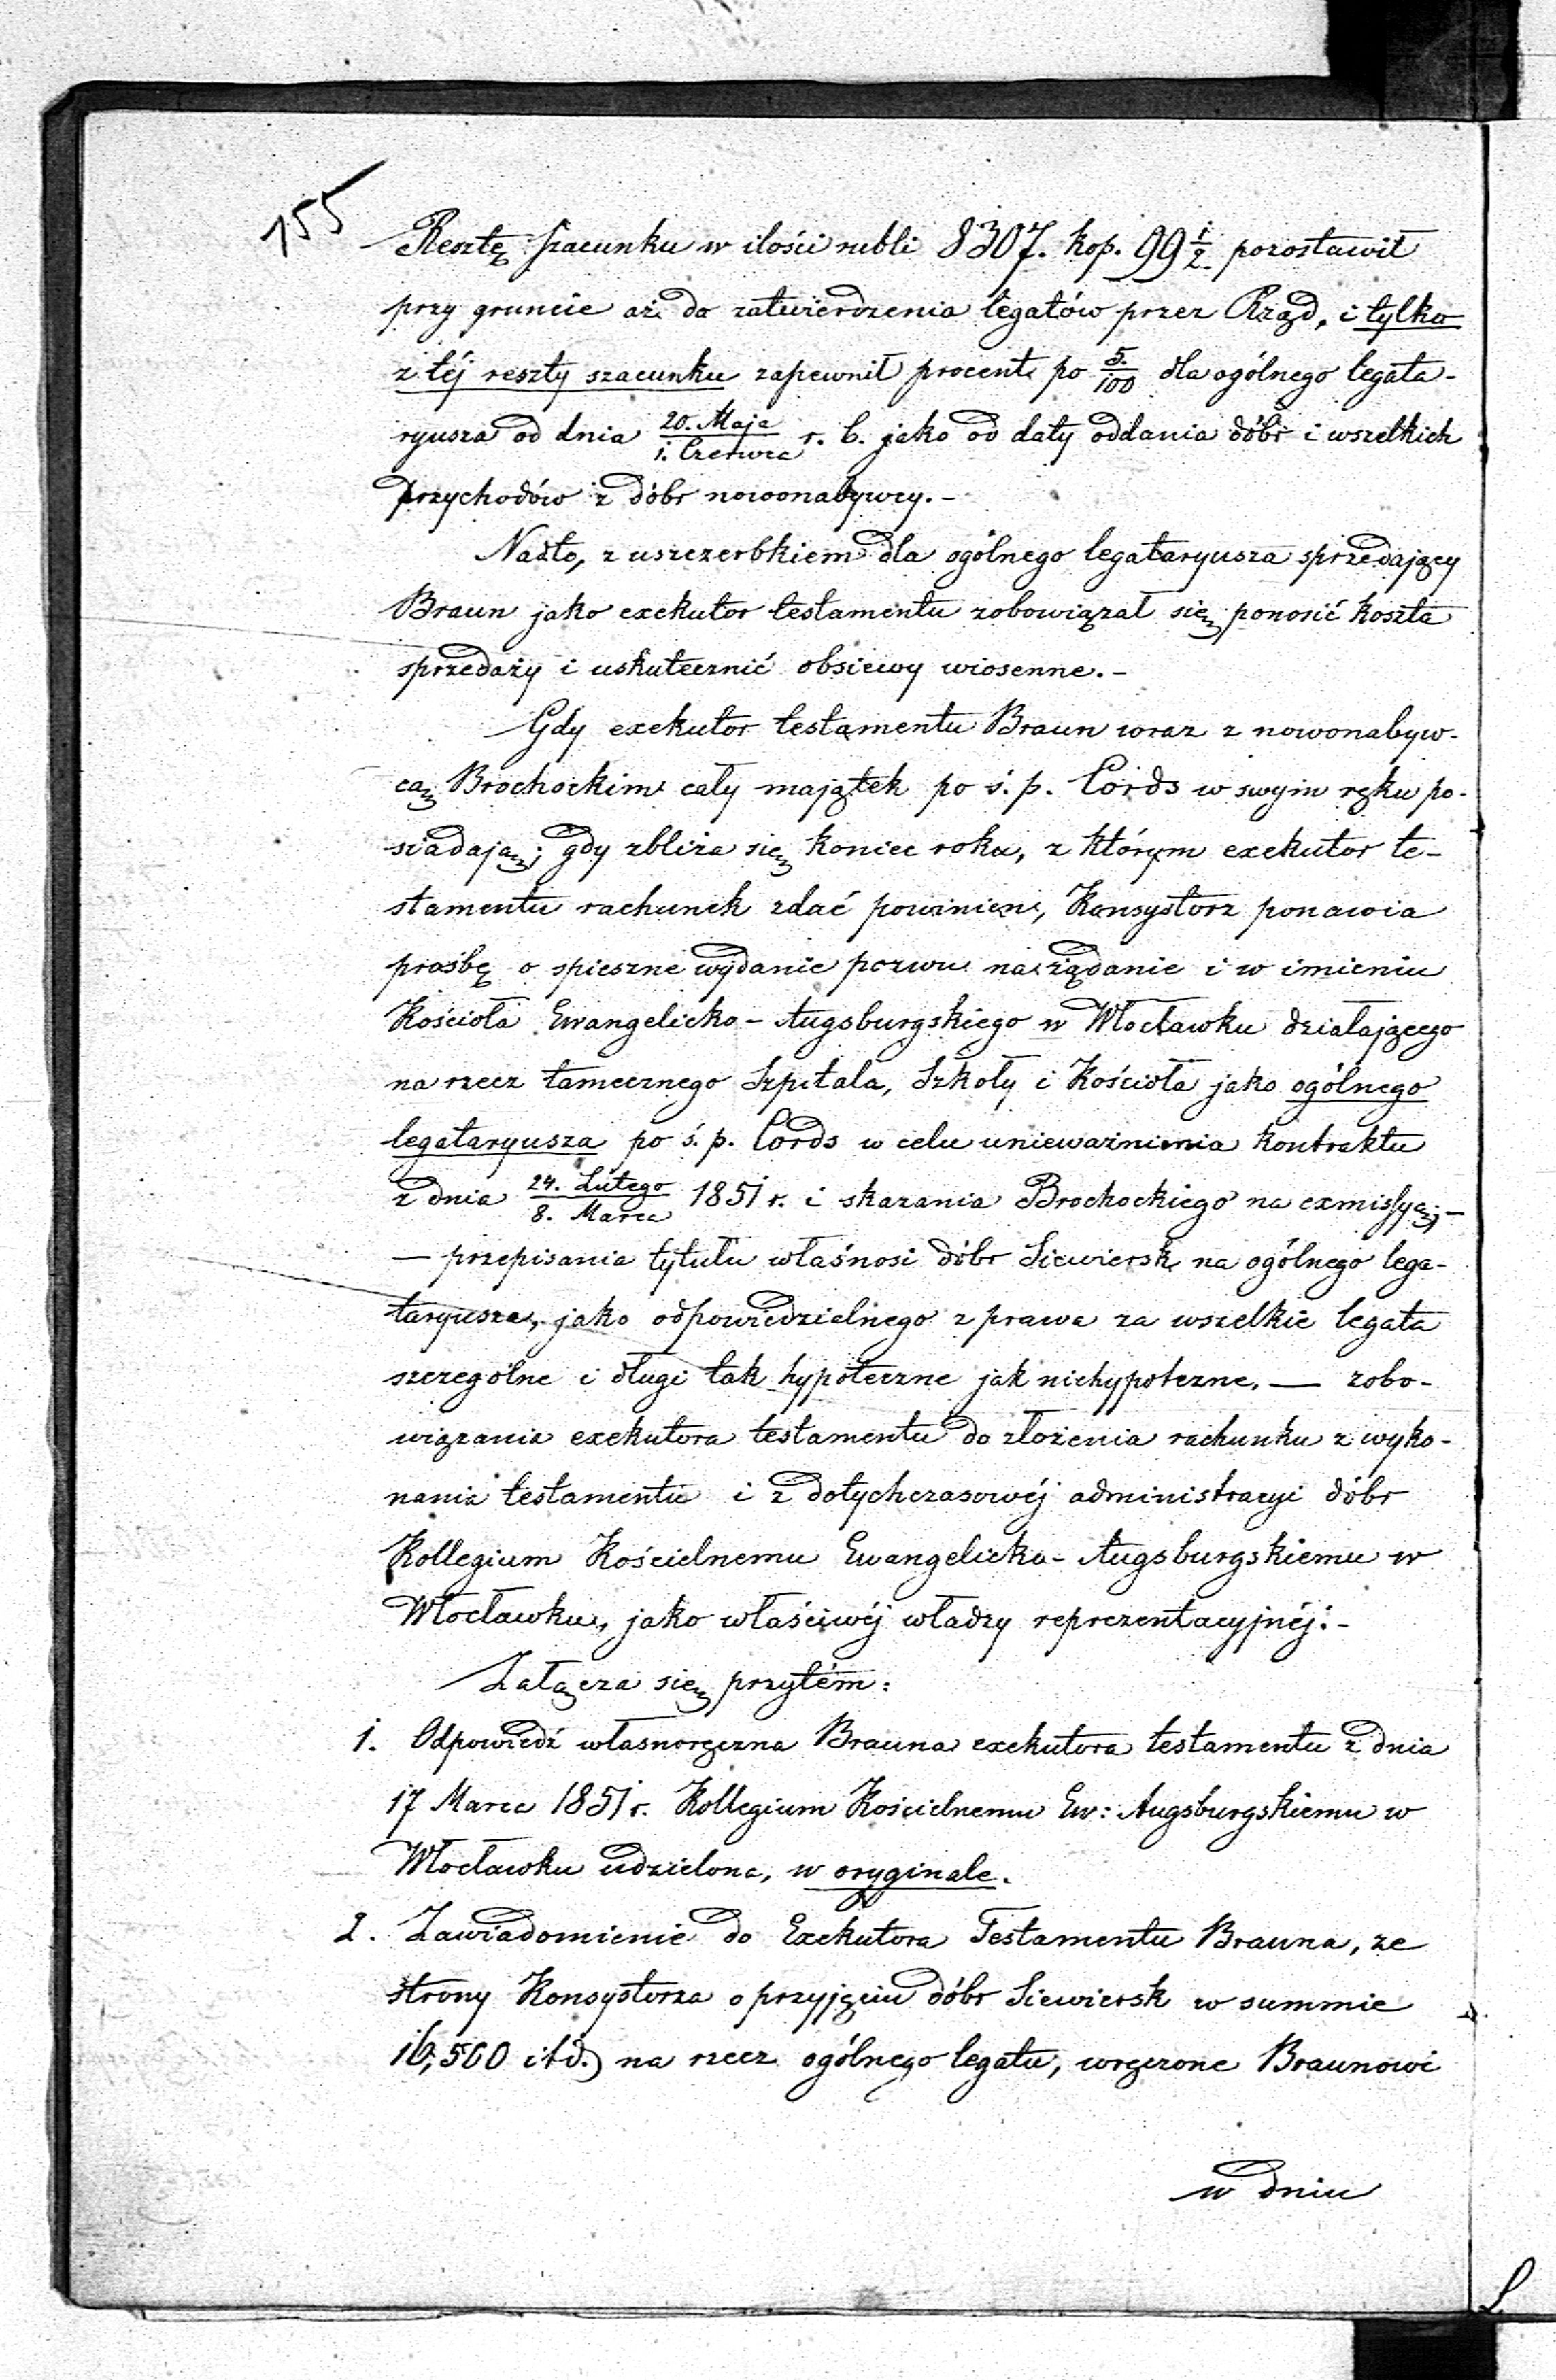 155
Resztę szacunku w ilości rubli 8307. kop. 99 1/2. pozostawił
przy gruncie aż do zatwierdzenia legatów przez Rząd, i tylko
z téj reszty szacunku zapewnił procent po 5/100 dla ogólnego legata-
ryusza od dnia 20. Maja/1. Czerwca r. b. jako od daty oddania dóbr i wszelkich
przychodów z dóbr nowonabywcy. -
Nadto, z uszczerbkiem dla ogólnego legataryusza sprzedający
Braun jako exekutor testamentu zobowiązał się ponosić koszta
sprzedaży i uskutecznić obsiewy wiosenne. -
Gdy exekutor testamentu Braun wraz z nowonabyw-
cą Brochockim cały majątek po ś. p. Cords w swym ręku po-
siadają; gdy zbliża się koniec roku, z którym exekutor te-
stamentu rachunek zdać powinien, Konsystorz ponawia
prośbę o spieszne wydanie pozwu na żądanie i w imieniu
Kościoła Ewangelicko-Augsburgskiego w Włocławku działającego
na rzecz tamecznego Szpitala, Szkoły i Kościoła jako ogólnego
legataryusza po ś. p. Cords w celu unieważnienia kontraktu
z dnia 24. Lutego/8. Marca 1851 r. i skazania Brochockiego na exmissyą; -
— przepisania tytułu własnosi dóbr Siewiersk na ogólnego lega-
taryusza, jako odpowiedzielnego z prawa za wszelkie legata
szczególne i długi tak hypoteczne jak niehypoteczne. — zobo-
wiązania exekutora testamentu do złożenia rachunku z wyko-
nania testamentu i z dotychczasowéj administracyi dóbr
Kollegium Kościelnemu Ewangelicko-Augsburgskiemu w
Włocławku, jako właściwéj władzy reprezentacyjnéj. -
Załącza się przytém:
1. Odpowiedź własnoręczna Brauna exekutora testamentu z dnia
17 Marca 1851 r. Kollegium Kościelnemu Ew: Augsburgskiemu w
Włocławku udzielona, w oryginale.
2. Zawiadomienie do Exekutora Testamentu Brauna, ze
strony Konsystorza o przyjęciu dóbr Siewiersk w summie
16,500 itd.) na rzecz ogólnego legatu, wręczone Braunowi
w dniu